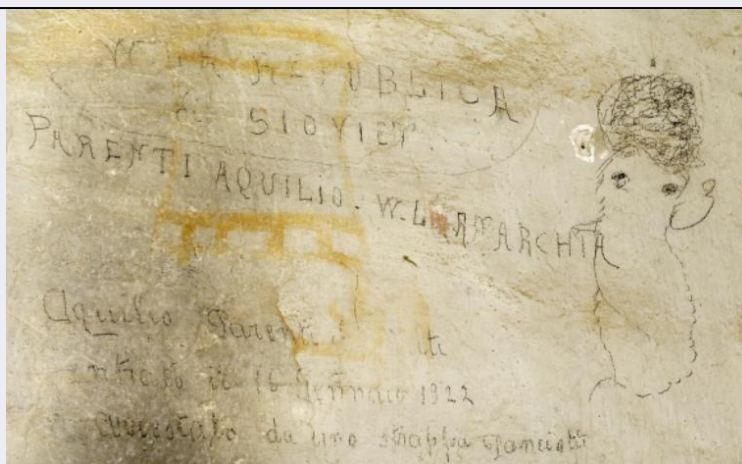 W LA REPUBLICA
di SIOVIET.
PARENTI AQUILIO. W. L ANARCHIA
Aquilio Parenti
ntrato il 16 Gennaio 1922
arrestato da uno